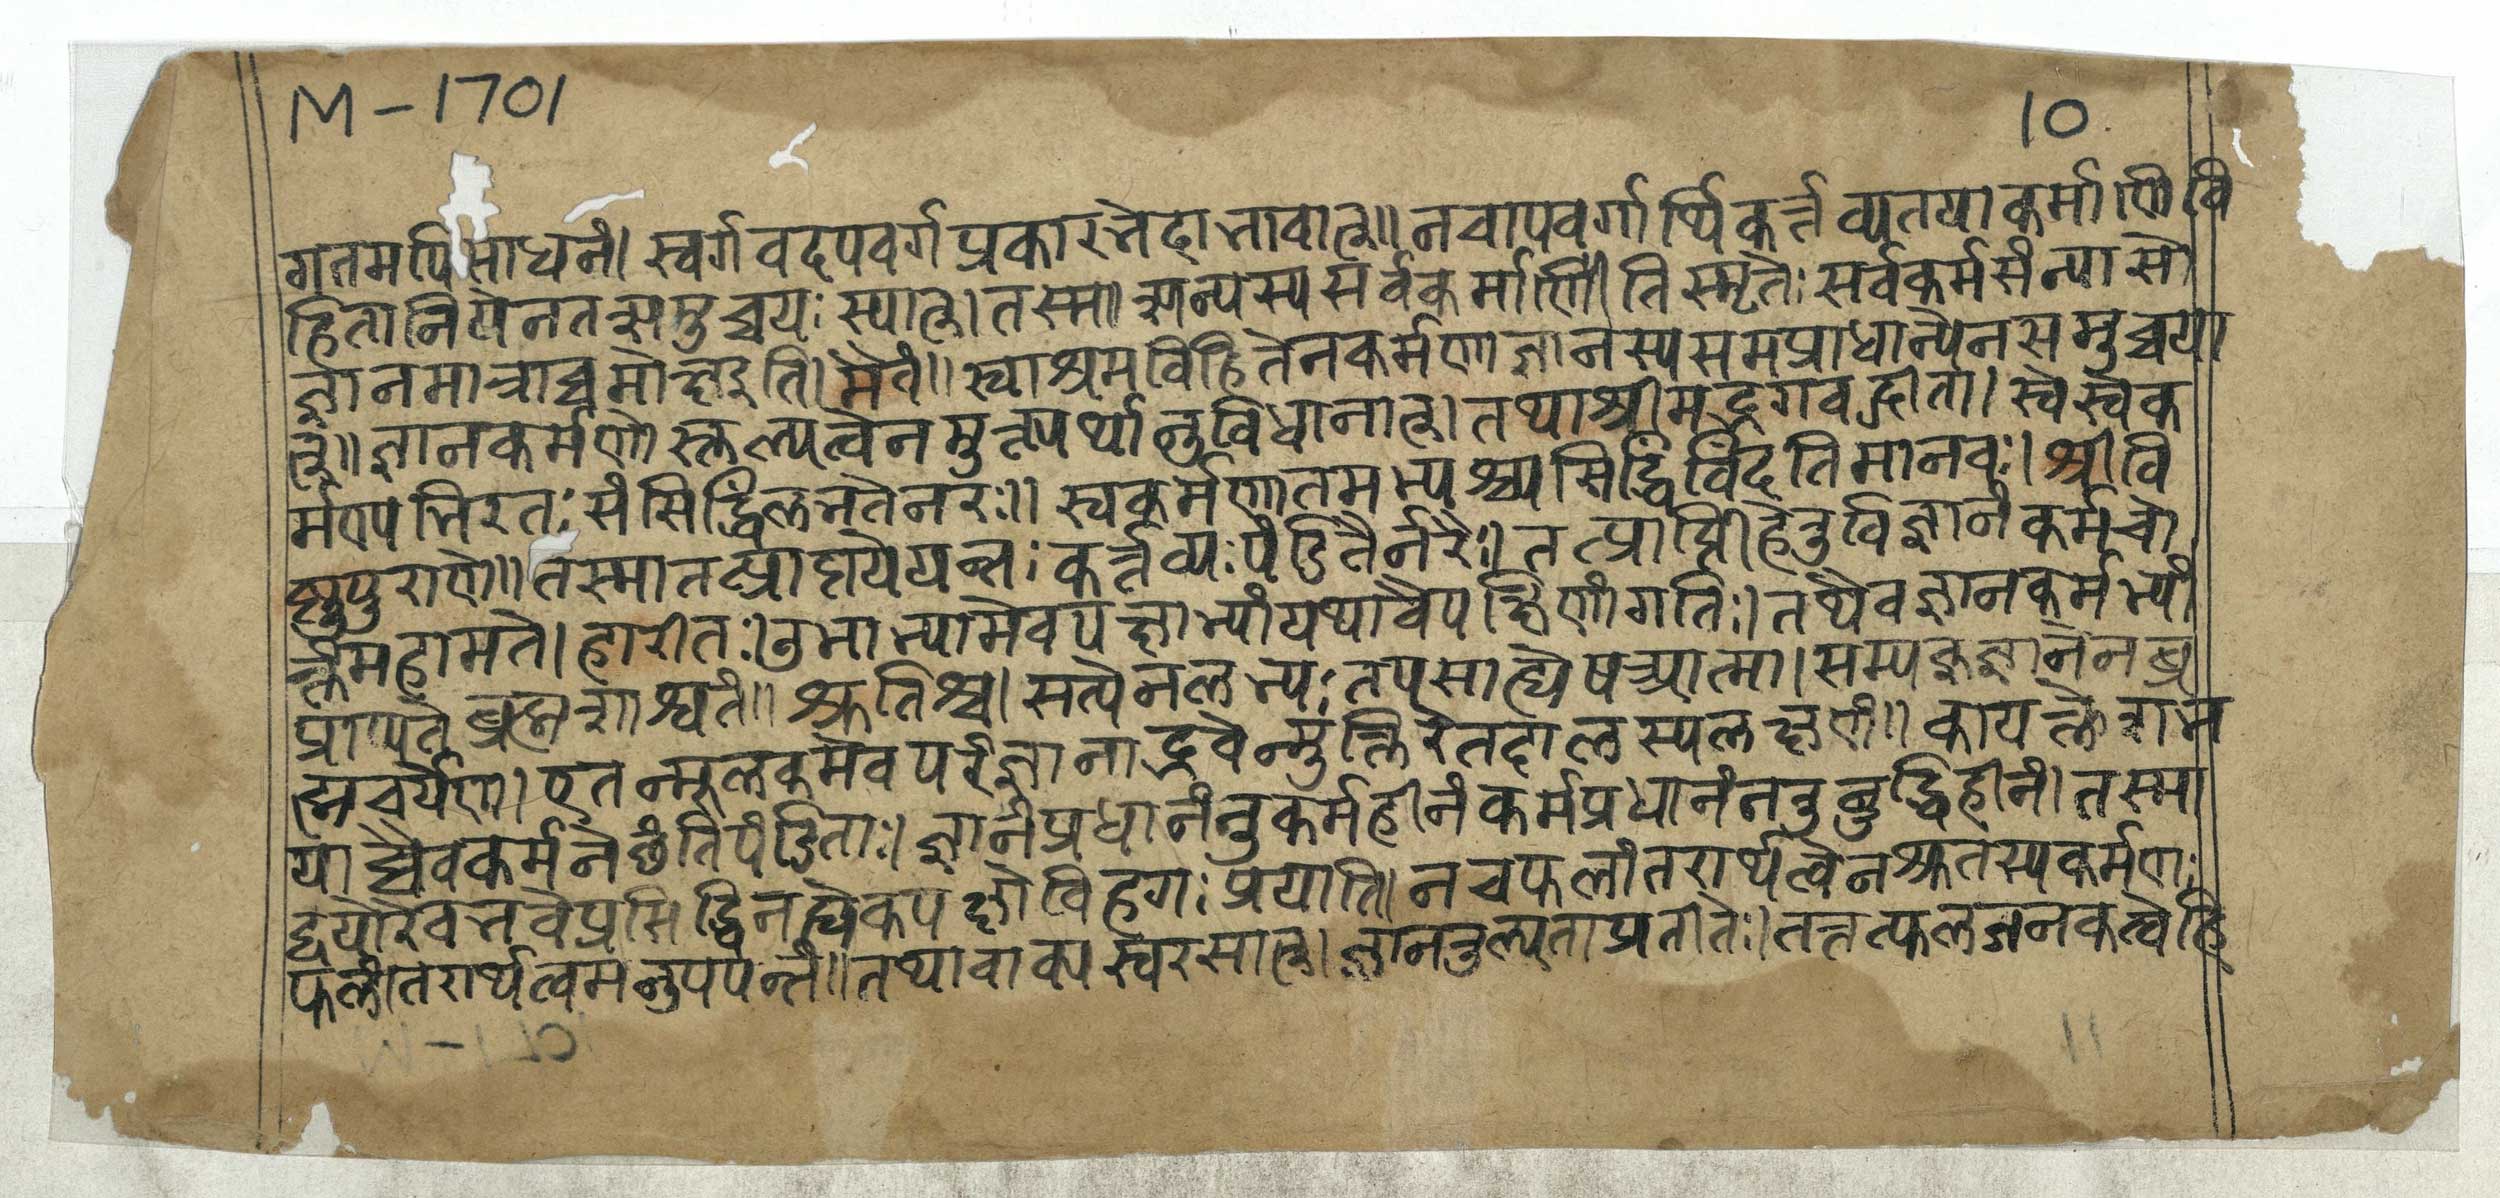 M-1701
10
गतमपि साधनं। स्वर्गवदपवर्गप्रकारभेदाभावात्॥ नचापवर्गार्थिकर्त्तव्यतयाकर्माणिवि
हितानियेनतत्समुच्चयः स्यात्। तस्मा त्सन्यस्यसर्वकर्माणीतिस्मृतेः सर्वकर्मसंन्यासो
ज्ञानमात्राच्चमोक्षइति। मैवं॥ स्वाश्रमविहितेनकर्मणाज्ञानस्यसमप्राधान्येनसमुच्चया
त्॥ ज्ञानकर्मणोस्तुल्यत्वेनमुक्त्यर्थानुविधानात्। तथाश्रीमद्भगवद्गीता। स्वेस्वेक
र्मण्यभिरतः संसिद्धिंलभतेनरः॥ स्वकर्मणातमभ्यर्च्यसिद्धिंविंदतिमानवः। श्रीवि
ष्णुपुराणे॥ तस्मातत्प्राप्तयेयत्नः कर्त्तव्यः पंडितैर्नरैः॥ तत्प्राप्तिहेतुर्विज्ञानंकर्मचो
क्तंमहामते। हारीतः। उभाभ्यामेवपक्षाभ्यांयथावैपक्षिणांगतिः। तथैवज्ञानकर्मभ्यां
प्राप्यतेब्रह्मशाश्वतं॥ श्रुतिश्च। सत्येनलभ्यः तपसाह्येषआत्मा। सम्यक्ज्ञानेनब्र
ह्मचर्येण। एतन्मूलकमेव परंज्ञानाद्भवेन्मुक्तिरेतदालस्यलक्षणं॥ कायक्लेशभ
याच्चैवकर्मनेछंतिपंडिताः। ज्ञानंप्रधानंनतुकर्महीनंकर्मप्रधानंनतुबुद्धिहीनं। तस्मा
द्द्वयोरेवभवेप्रसिद्धिर्नह्येकपक्षोविहगः प्रयाति॥ नचफलांतरार्थत्वेनश्रुतस्यकर्मणः
फलांतरार्थत्वमनुपपन्नं॥ तथावाक्यस्वरसात्। ज्ञानतुल्यताप्रतीतेः। तत्तत्फलजनकत्वेहि